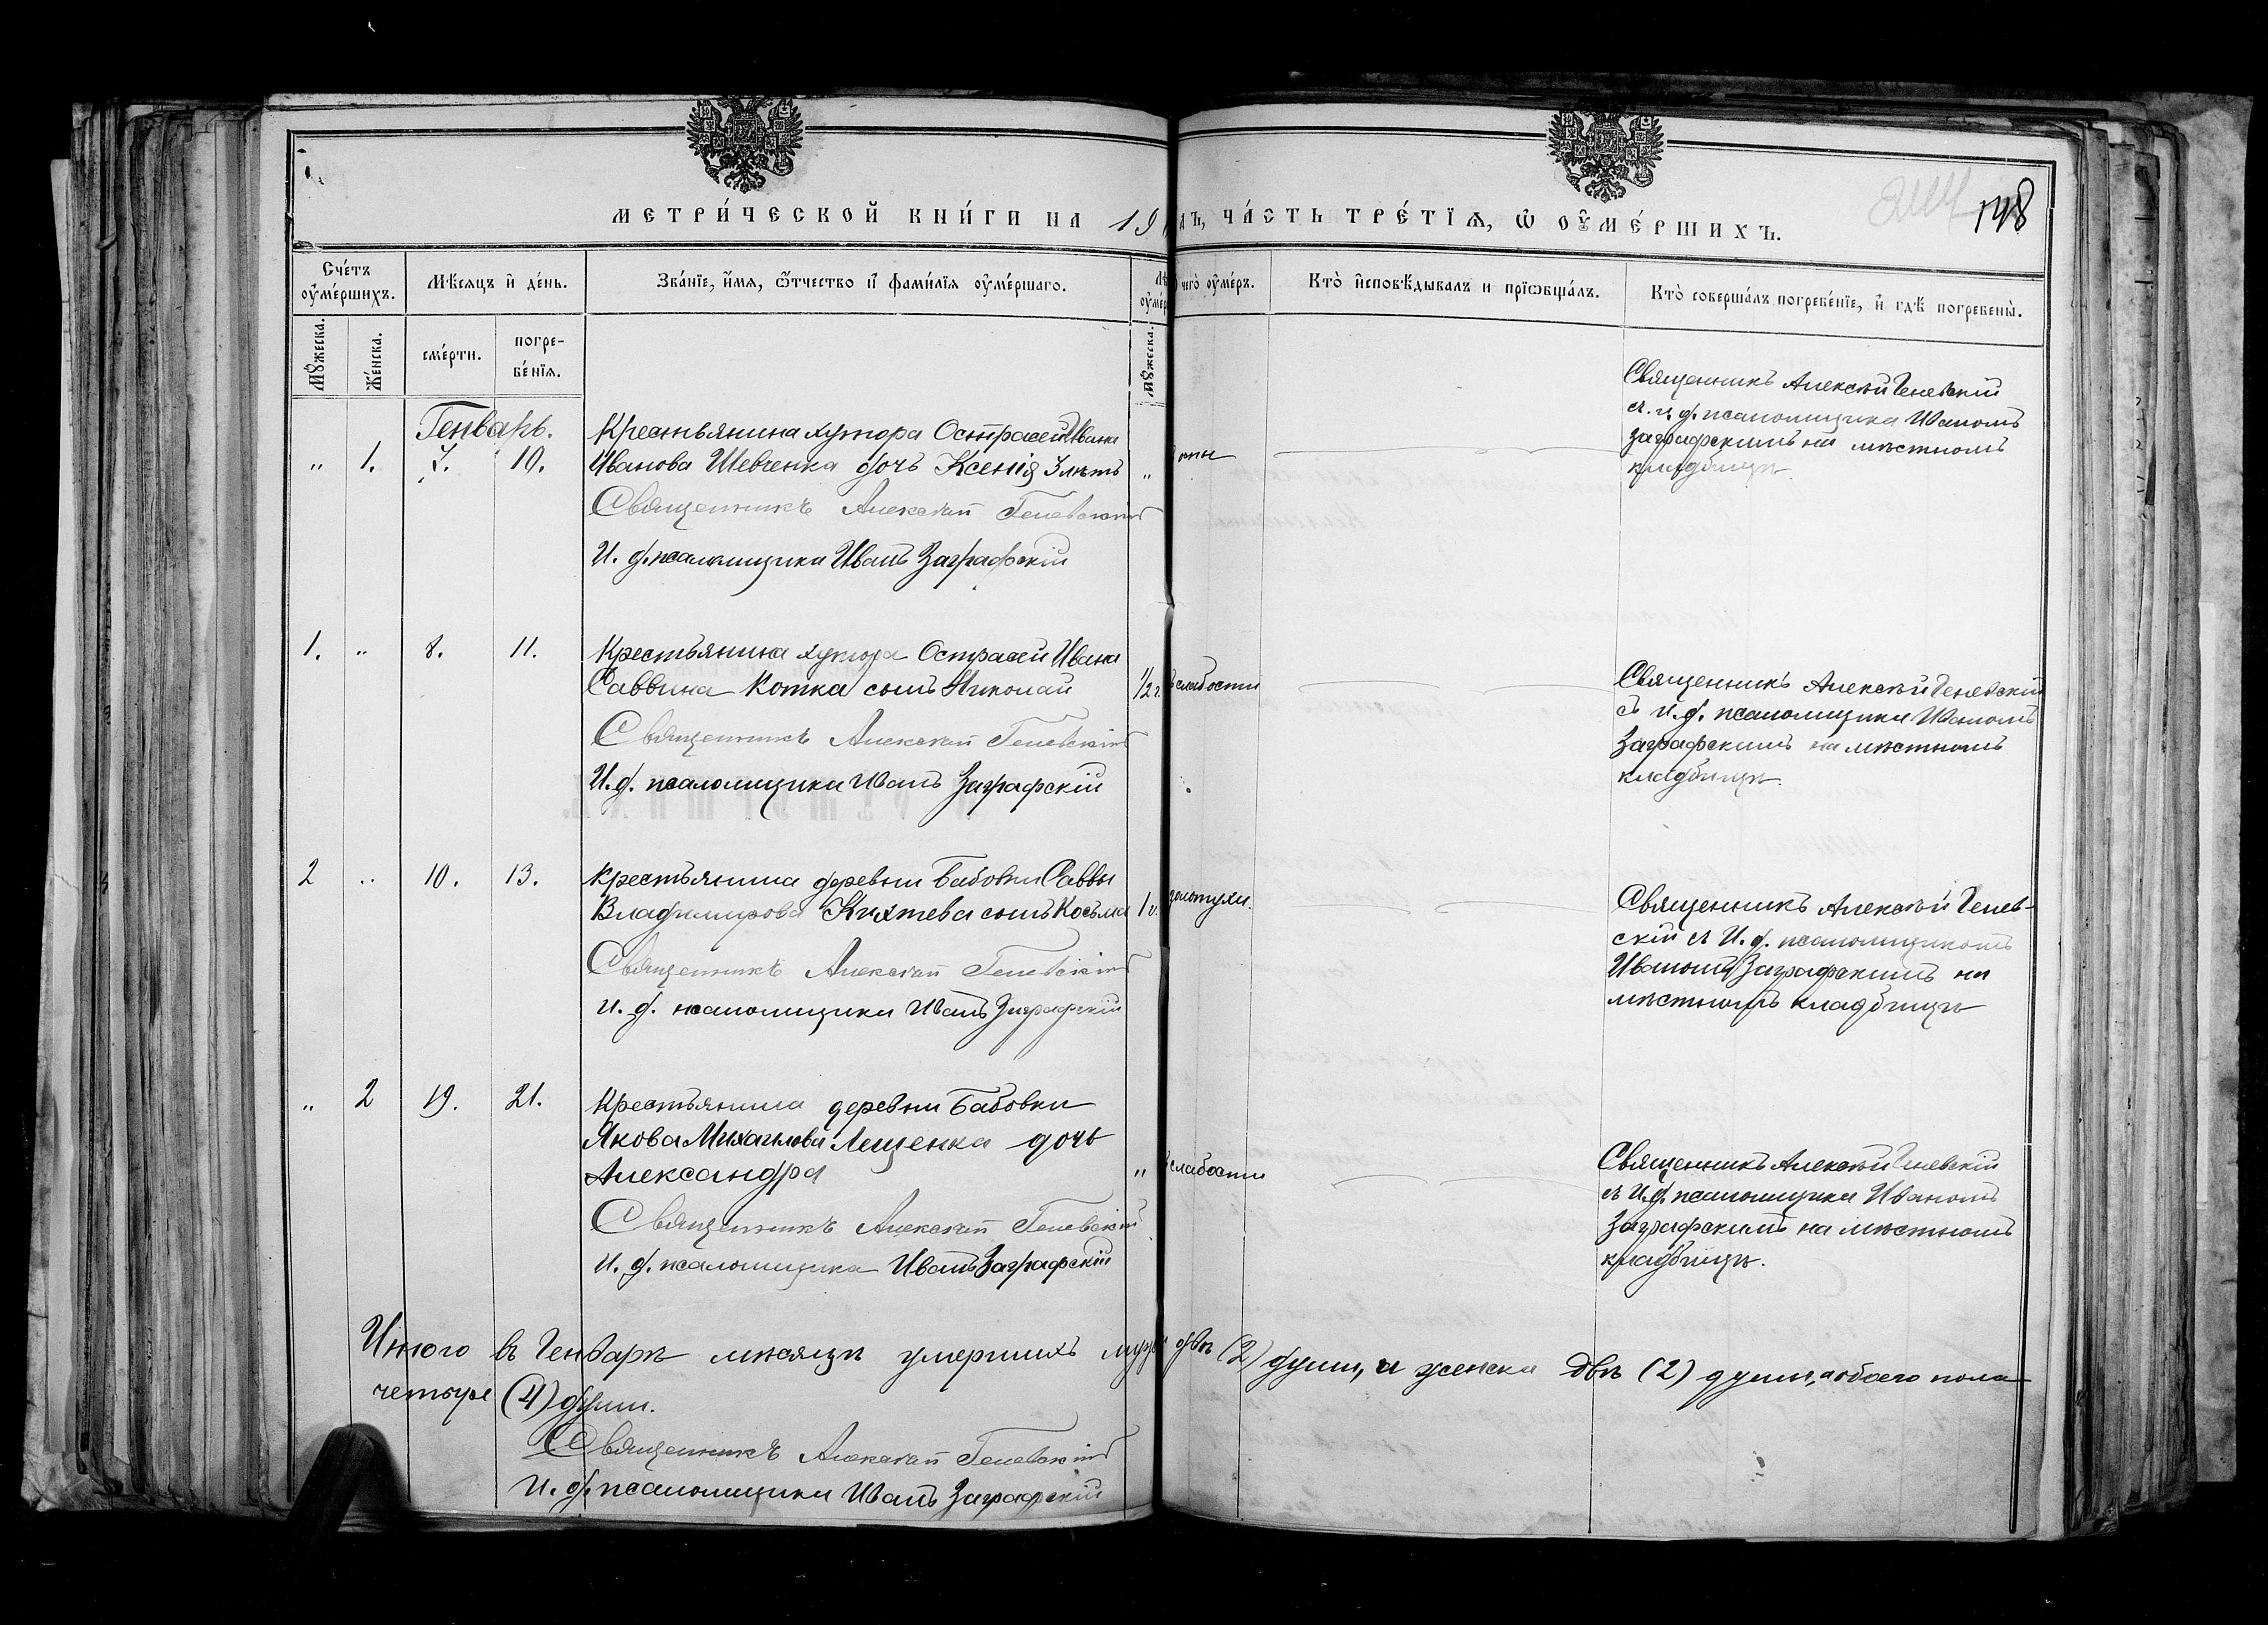 МЕТРИ́ЧЕСКОЙ КНИ́ГИ НА 19
ЧА́СТЬ ТРЕ́ТЇѦ, Ѡ҆ ОУ҆МЕ́РШИХЪ.
148
Сче́тъ оу҆ме́ршихъ.
Мѣ́сяцъ и҆ де́нь.
Зва́нїе, и҆́мя, ѻ҆́тчество и҆ фами́лїя оу҆ме́ршаго.
чего̀ оу҆ме́ръ.
Кто̀ и҆сповѣ́дывалъ и прїѡбща́лъ.
Кто̀ соверша́лъ погребе́нїе, и҆ гдѣ̀ погребены̀.
Мꙋ́жеска.
Же́нска.
сме́рти.
погре-
бе́нїя.
Мꙋ́жеска.
Генварь.
„ 1. 7. 10.
Крестьянина хутора Острасей Ивана
Иванова Шевченка дочь Ксенія 3 лѣтъ „
Священникъ Алексѣй Геневскій
И. д. псаломщика Иванъ Заграфскій
Священникъ Алексѣй Геневскій
съ и. д. псаломщика Иваномъ
Заграфскимъ на мѣстномъ
кладбищѣ
1. „ 8. 11.
Крестьянина хутора Острасей Ивана
Саввина Котка сынъ Николай 1/2 г.
слабости
Священникъ Алексѣй Геневскій
И. д. псаломщика Иванъ Заграфскій
Священникъ Алексѣй Геневскій
съ и. д. псаломщика Иваномъ
Заграфскимъ на мѣстномъ
кладбищѣ.
2 „ 10. 13.
Крестьянина деревни Бабовки Саввы
Владимірова сынъ Косьма 1 г.
золотухи.
Священникъ Алексѣй Геневскій
и. д. псаломщика Иванъ Заграфскій
Священникъ Алексѣй Генев-
скій съ И. д. псаломщикомъ
Иваномъ Заграфскимъ на
мѣстномъ кладбищѣ
„ 2 19. 21.
Крестьянина деревни Бабовки
Якова Михаилова Лещенка дочь
Александра „
слабости
Священникъ Алексѣй Геневскій
и. д. псаломщика Иванъ Заграфскій
Священникъ Алексѣй Геневскій
съ И. д. псаломщика Иваномъ
Заграфскимъ на мѣстномъ
кладбищѣ.
Итого въ Генварѣ мѣсяцѣ умершихъ двѣ (2) души, а женска двѣ (2) души, а обоего пола
четыре (4) души.
Священникъ Алексѣй Геневскій
И. д. псаломщика Иванъ Заграфскій